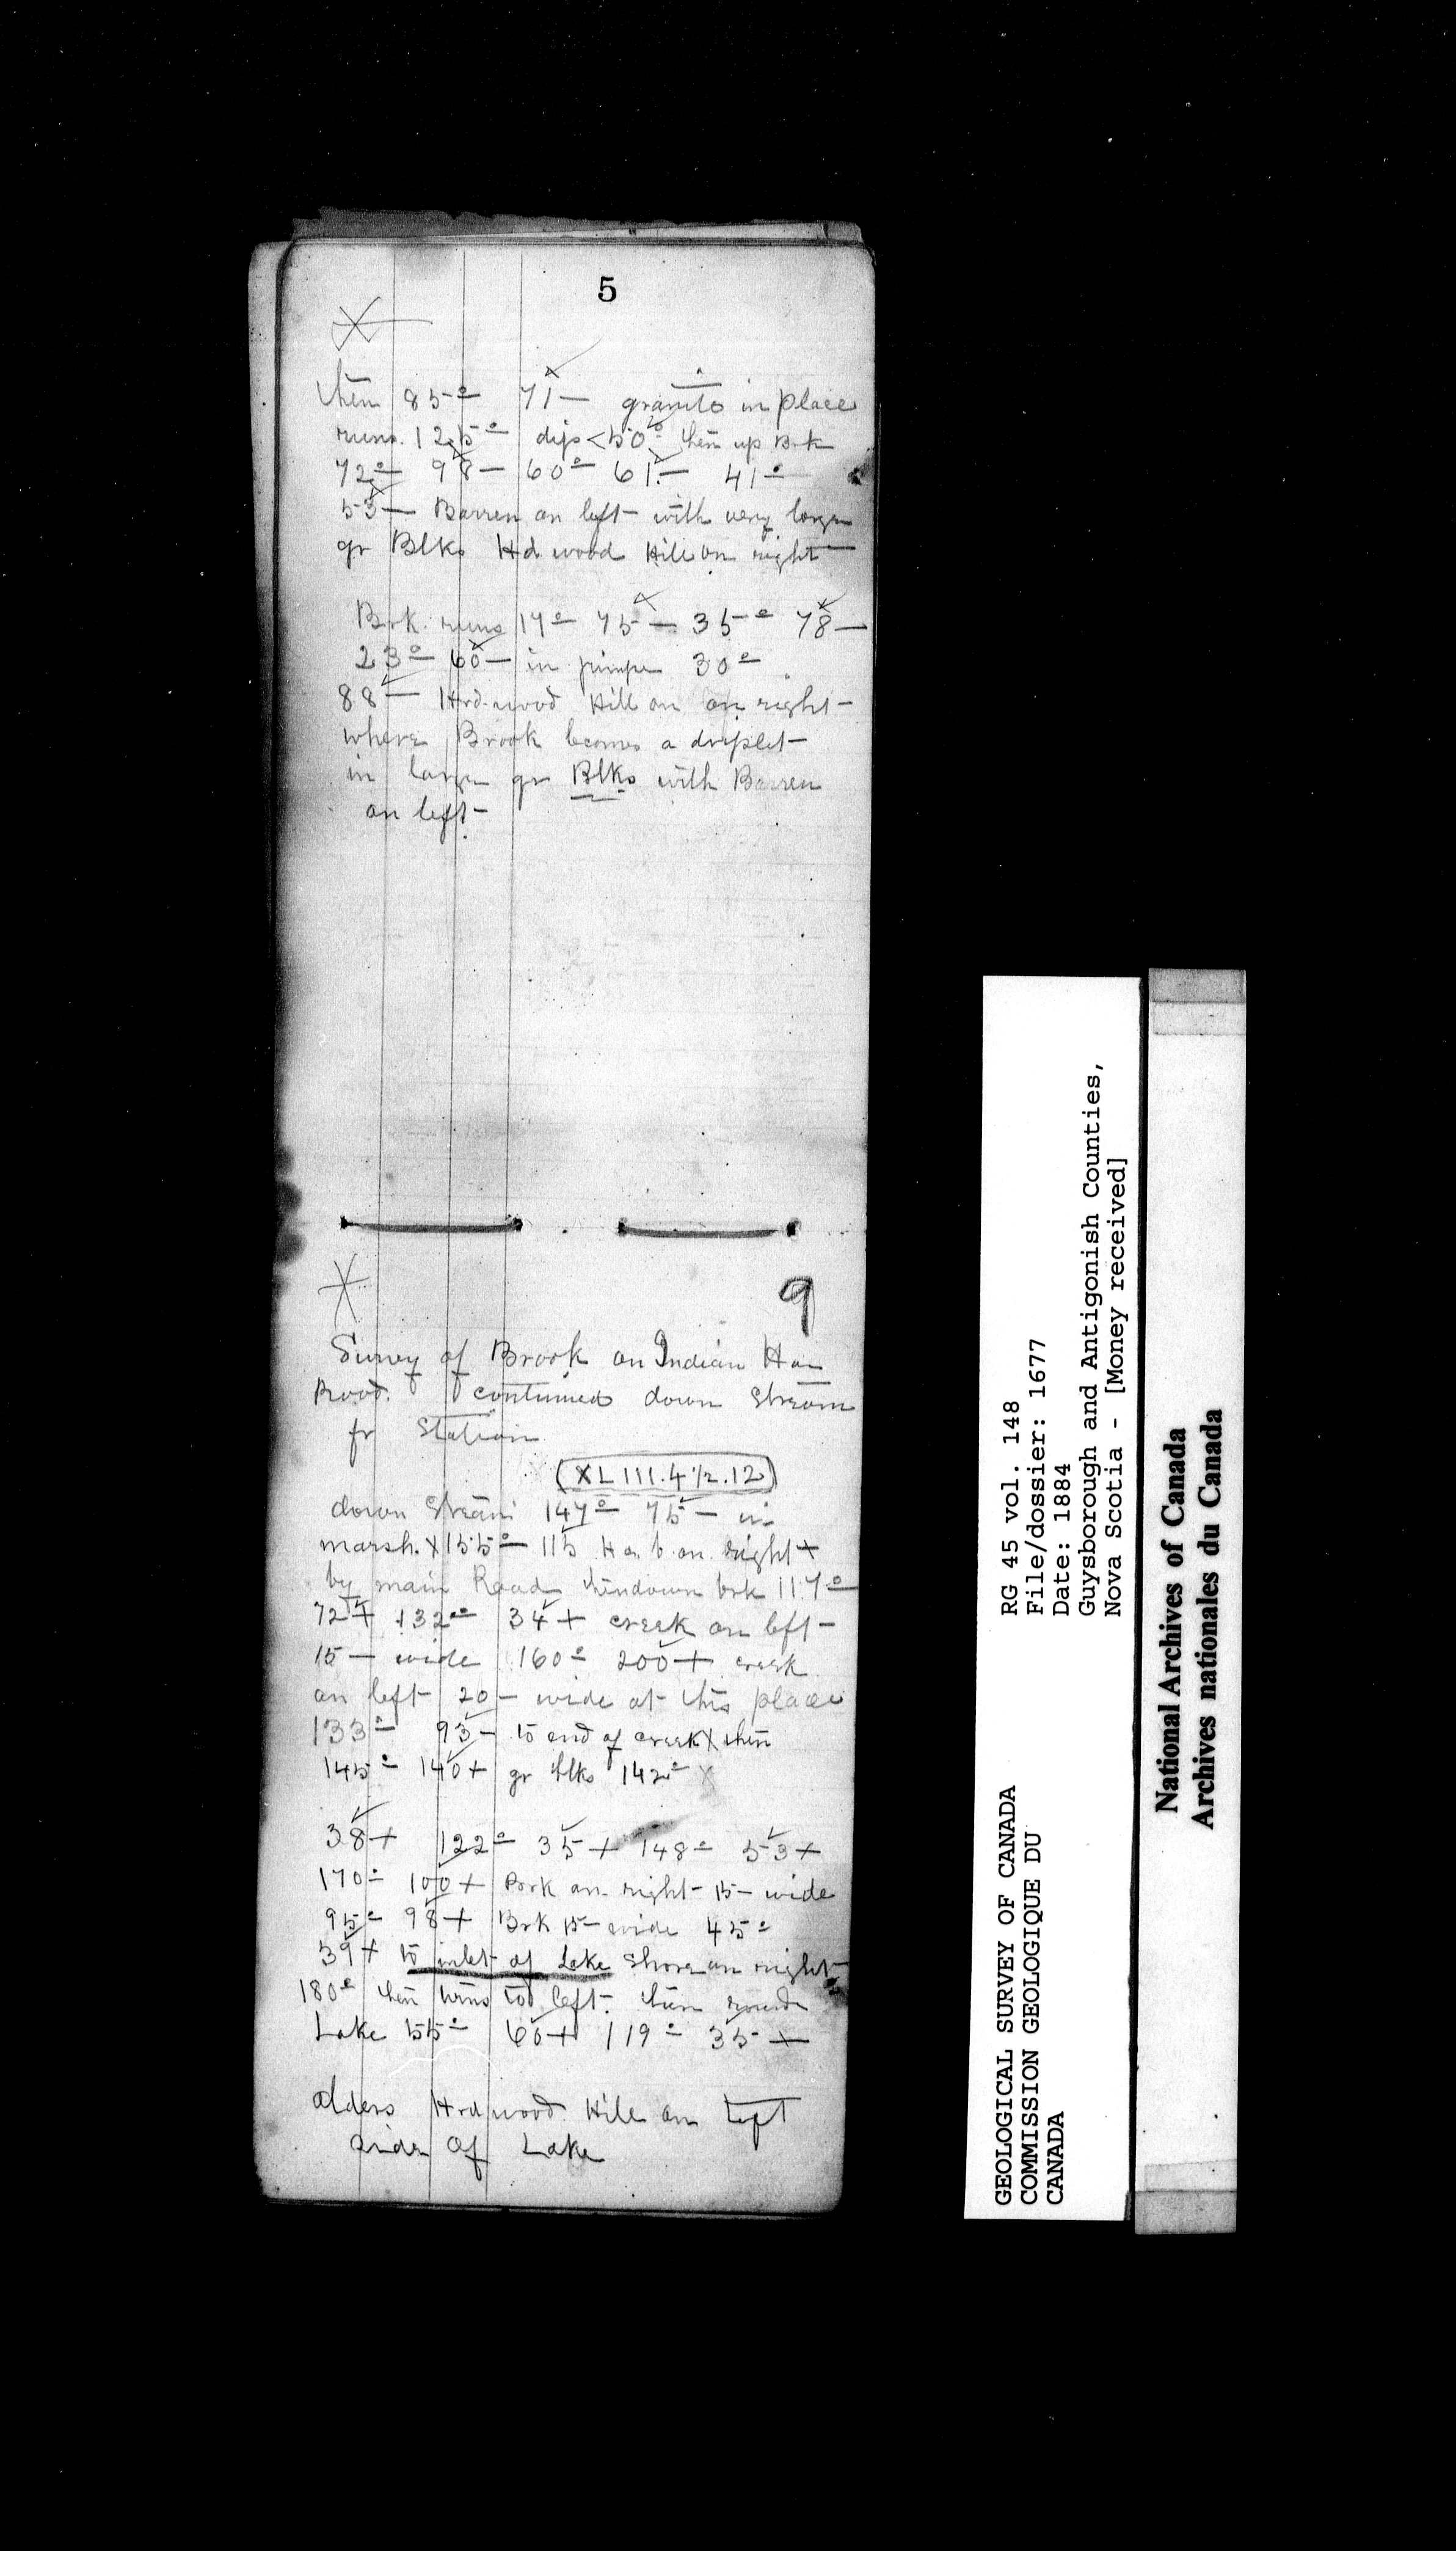 5
then 85° 71— granite in place
runs. 125° dips <50° then up Brk
72° 98— 60° 61— 41°
53— Barren on left with very large
gr Blks Hd wood Hill on right
Brk. runs 17° 75— 35° 78—
23° 60— in 30°
88— Hrd.wood Hill on on right—
where Brook becomes a driplet—
in large gr Blks with Barren
on left—
9
Survey of Brook on Indian Har
Road continued down Stream
fr Station
XLIII.4½.12
down Stream 147° 75— in
marsh. x 155° 115 on right +
by main Road then down brk 117°
72+ 132° 34+ creek on left—
15— wide 160° 200+ creek
on left 20— wide at this place
133° 93— to end of creek x then
145° 140+ gr blks 142° x
38+ 122° 35+ 148° 53+
170° 100+ on right— 15— wide
95° 98+ Brk 15— wide 45°
39+ to inlet of Lake Shore on right—
180° then turns to left. then round
Lake 55° 60+ 119° 35+
alders Hrd wood Hill on Left
side of Lake
RG 45 vol. 148
File/dossier: 1677
Date: 1884
Guysborough and Antigonish Counties,
Nova Scotia - [Money received]
GEOLOGICAL SURVEY OF CANADA
COMMISSION GEOLOGIQUE DU
CANADA
National Archives of Canada
Archives nationales du Canada